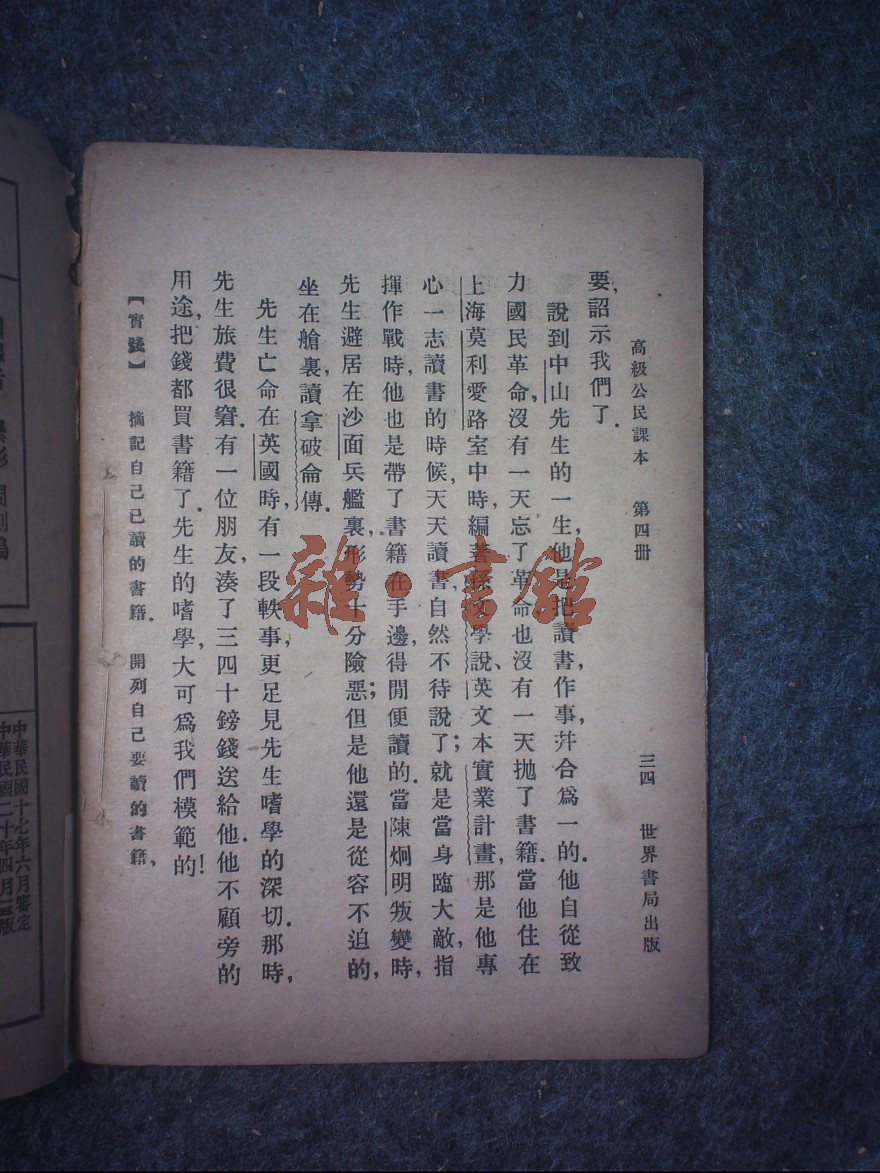 高級公民課本　第四册　三四　世界書局出版
要詔示我們了．
說到中山先生的一生，他是把讀書，作事，幷合爲一的．他自從致
力國民革命，沒有一天忘了革命，也沒有一天抛了書籍．當他住在
上海莫利愛路室中時，編著孫文學說、英文本實業計畫，那是他專
心一志讀書的時候，天天讀書，自然不待說了；就是當身臨大敵，指
揮作戰時，他也是帶了書籍在手邊，得閒便讀的．當陳烱明叛變時，
先生避居在沙面兵艦裏，形勢十分險惡；但是他還是從容不迫的，
坐在艙裏，讀拿破侖傳．
先生亡命在英國時，有一段軼事，更足見先生嗜學的深切．那時，
先生旅費很窘．有一位朋友，湊了三四十鎊錢送給他．他不顧旁的
用途，把錢都買書籍了．先生的嗜學，大可爲我們模範的！
【實踐】　摘記自己已讀的書籍．　開列自己要讀的書籍．
雜·書館
中華民國十七年六月審定
中華民國二十年四月
版